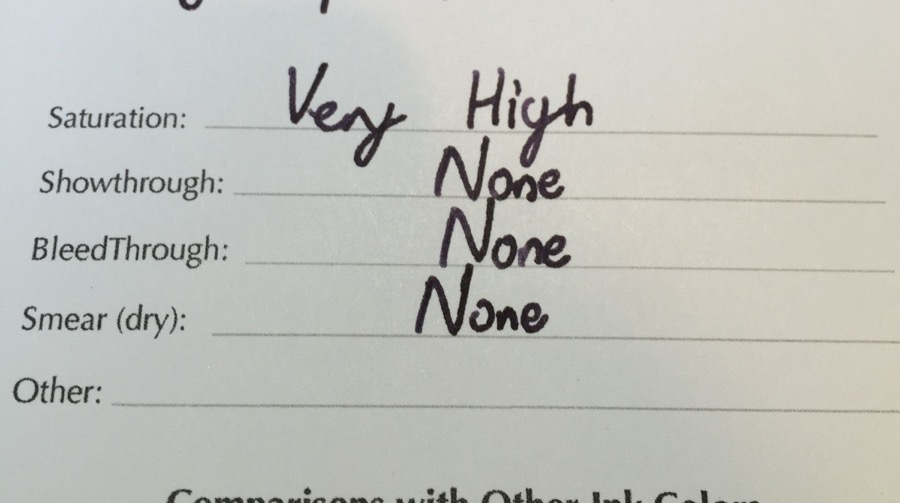 Saturation: Very High
Showthrough: None
BleedThrough: None
Smear (dry): None
Other:
Comparisons with Other Ink Colors